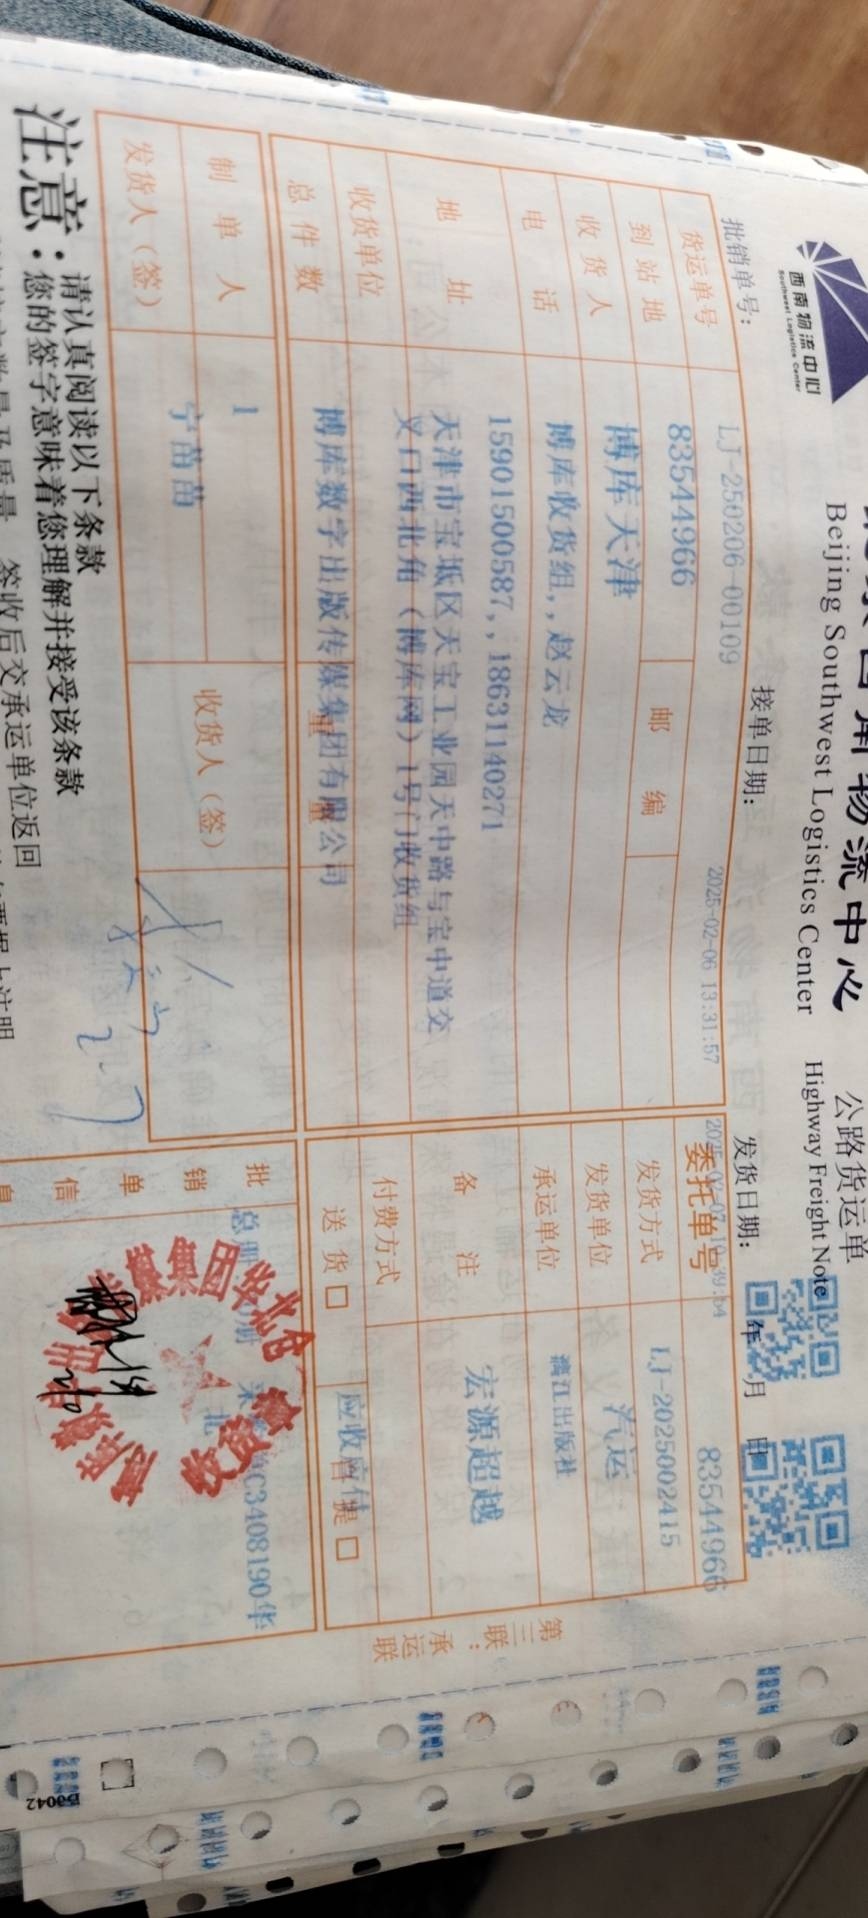 西南物流中心
Southwest Logistics Center
西南物流中心 公路货运单
Beijing Southwest Logistics Center Highway Freight Note
批销单号: LJ-250206-00109 接单日期: 2025-02-06 13:31:57 发货日期: 年 月 日
货运单号 83544966 委托单号 83544966
到站地 博库天津 邮编 发货方式 LJ-2025002415
收货人 博库收货组,,赵云龙 发货单位 汽运
电话 15901500587,,18631140271 承运单位 漓江出版社
地址 天津市宝坻区天宝工业园天中路与宝中道交
叉口西北角(博库网)1号门收货组 备注 宏源超越
收货单位 博库数字出版传媒集团有限公司 付费方式
总件数 1 送货□ 自提□ 应收应付
制单人 宁苗苗 收货人(签)
发货人(签) 2-7
批销单信息 总册 C3408190华
北
第三联:承运联
注意: 请认真阅读以下条款
您的签字意味着您理解并接受该条款
签收后交承运单位返回